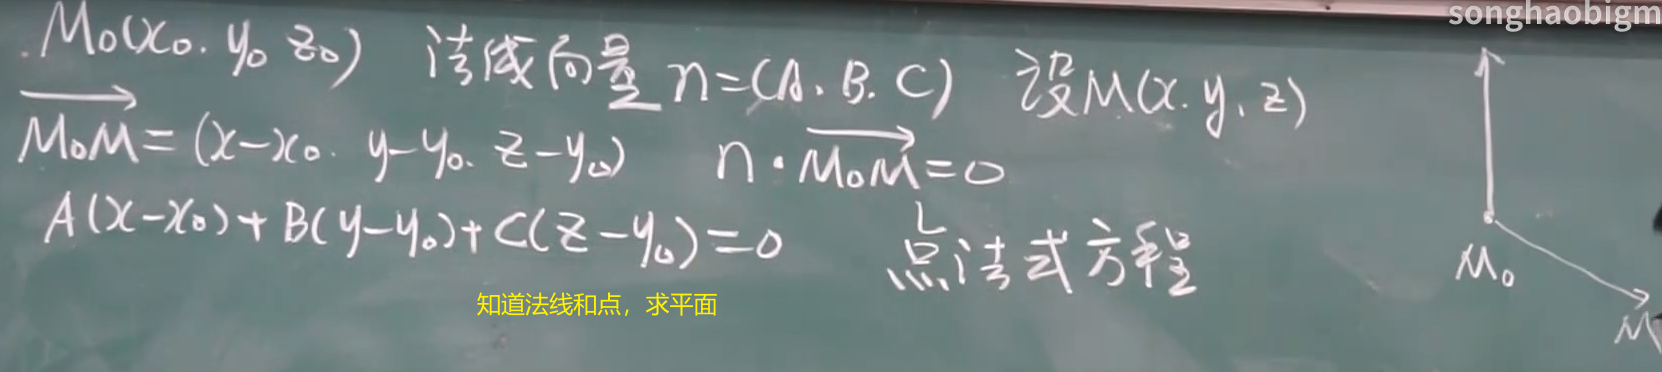 songhaobigm
M₀(x₀. y₀ z₀) 法线向量 n=(A. B. C) 设M(x. y. z)
M₀M=(x-x₀. y-y₀. z-y₀) n·M₀M=0
A(x-x₀)+B(y-y₀)+C(z-y₀)=0 点法式方程
M₀
知道法线和点，求平面
M